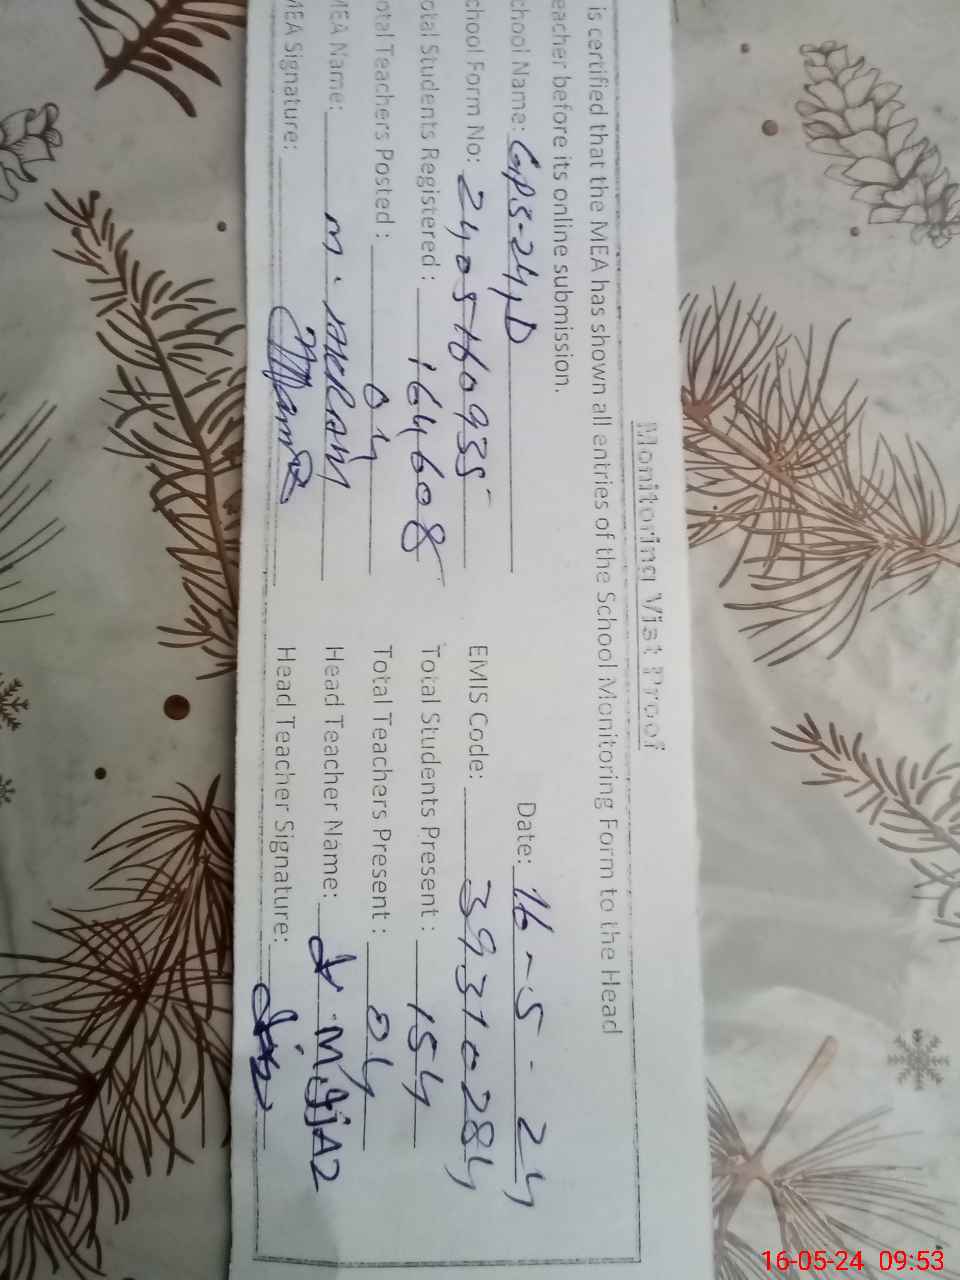 Monitoring Visit Proof
is certified that the MEA has shown all entries of the School Monitoring Form to the Head
eacher before its online submission.
Date: 16-5-24
chool Name: GPS-24,D
chool Form No: 2405160935 EMIS Code: 39310284
otal Students Registered : 164608 Total Students Present : 154
otal Teachers Posted : 04 Total Teachers Present : 04
MEA Name: M. Head Teacher Name:
MEA Signature: Head Teacher Signature:
16-05-24 09:53